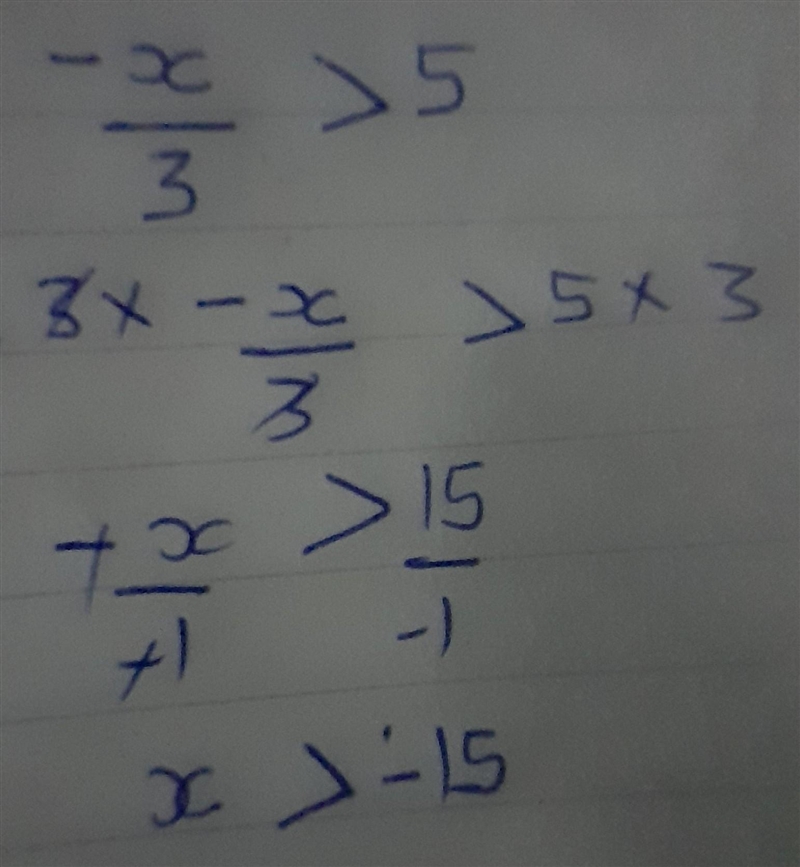 -x/3 > 5
3 × -x/3 > 5 × 3
-x/-1 > 15/-1
x > -15